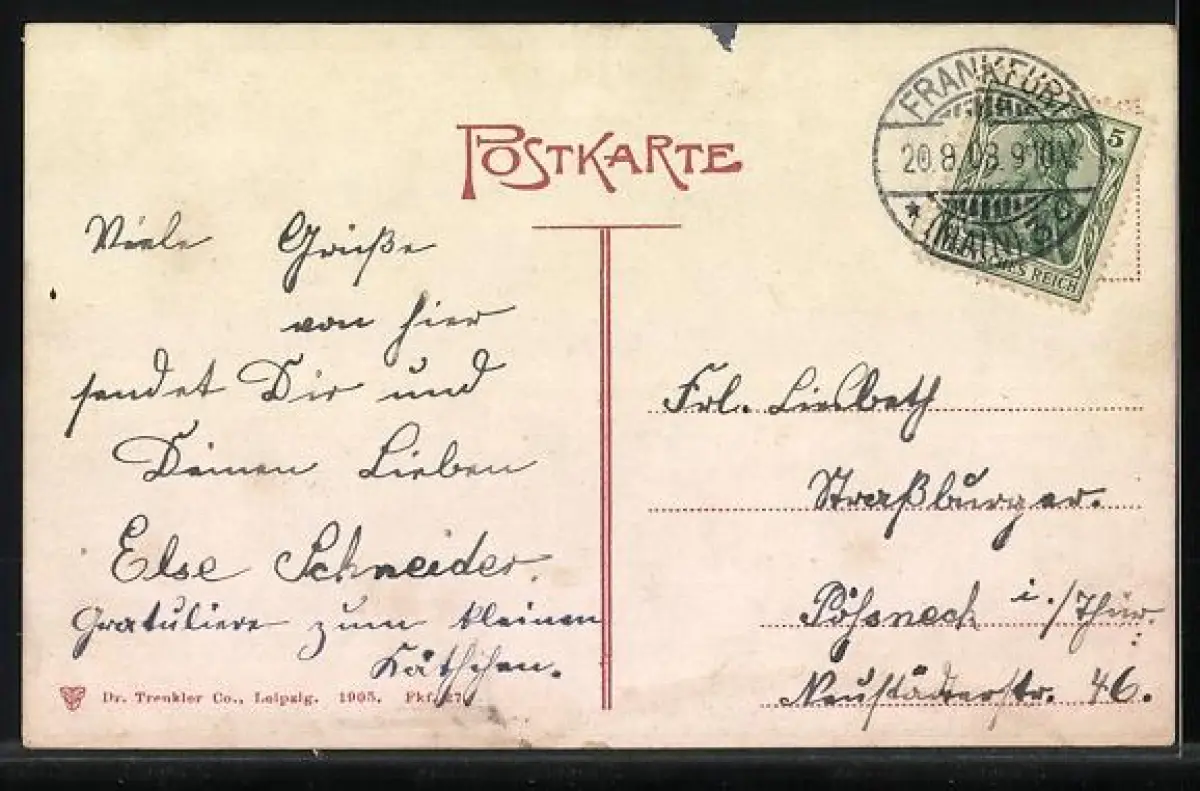 POSTKARTE
FRANKFURT
20.8.08.9-10N.
* (MAIN)
5
REICH
Viele Grüße
von hier
sendet Dir und
Deinen Lieben
Else Schneider.
Gratuliere zum kleinen
Käthchen.
Frl. Liesbeth
Straßburger.
Pößneck i./Thür.
Neustädterstr. 46.
Dr. Trenkler Co., Leipzig. 1905. Fkf. 27